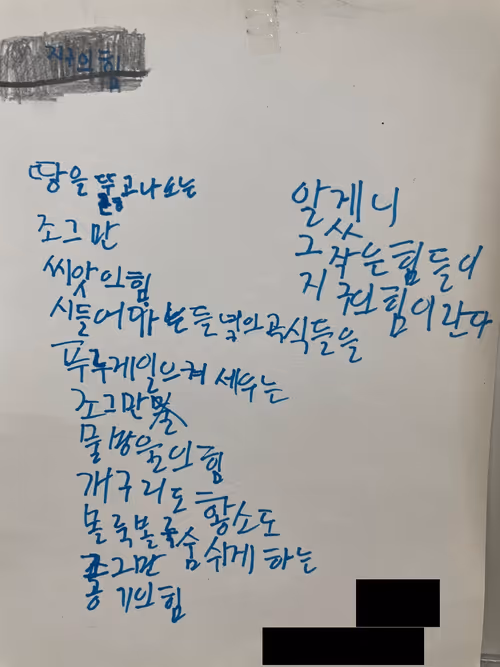 지구의 힘
땅을 뚫고나오는
조그만
씨앗의 힘
시들어 가는 들녘의 곡식들을
푸루게 일으켜 세우는
조그만
물방울의 힘
개구리도 황소도
볼록볼록 숨쉬게 하는
조그만
공기의 힘
알겠니
그 작은 힘들이
지구의 힘이란다